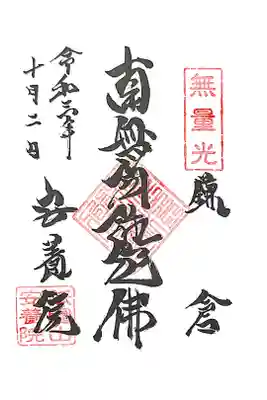 無量光
鎌倉
南無阿弥陀佛
安養院
令和三年
十月二日
安養院